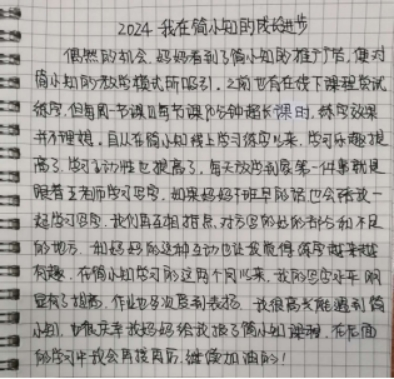 2024 我在简小知的成长进步
偶然的机会,妈妈看到了简小知的推广后,便对
简小知的教学模式所吸引,之前也有在线下课程尝试
练字,但每周一节课且每节课90分钟超长课时,练字效果
并不理想。自从在简小知线上学习练字以来,学习乐趣提
高了,学习主动性也提高了,每天放学到家第一件事就是
跟着王老师学习写字,如果妈妈下班早的话也会陪我一
起学习写字,我们再互相指点,对方写的好的部分和不足
的地方,和妈妈的这种互动也让我觉得练字越来越
有趣。在简小知学习的这两个月以来,我的写字水平明
显有了提高,作业也多次受到表扬,我很高兴能遇到简
小知,也很庆幸我妈妈给我报了简小知课程,在后面
的学习中我会再接再厉,继续加油的!